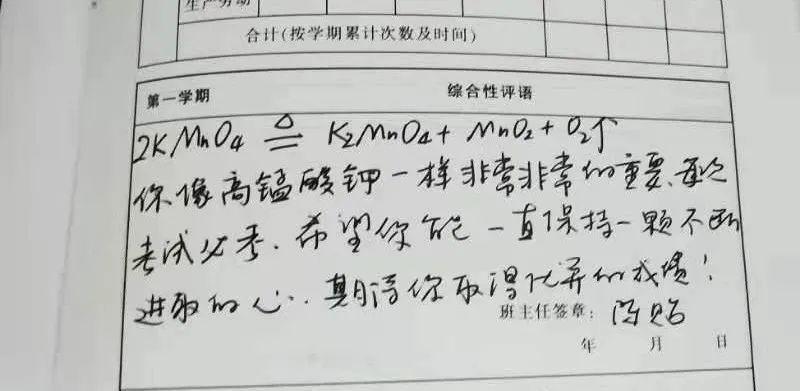 生产劳动
合计(按学期累计次数及时间)
第一学期 综合性评语
2KMnO4 ≜ K2MnO4+ MnO2+ O2↑
你像高锰酸钾一样非常非常的重要、每次
考试必考. 希望你能一直保持一颗不断
进取的心. 期待你取得优异的成绩!
班主任签章: 陈贻
年 月 日